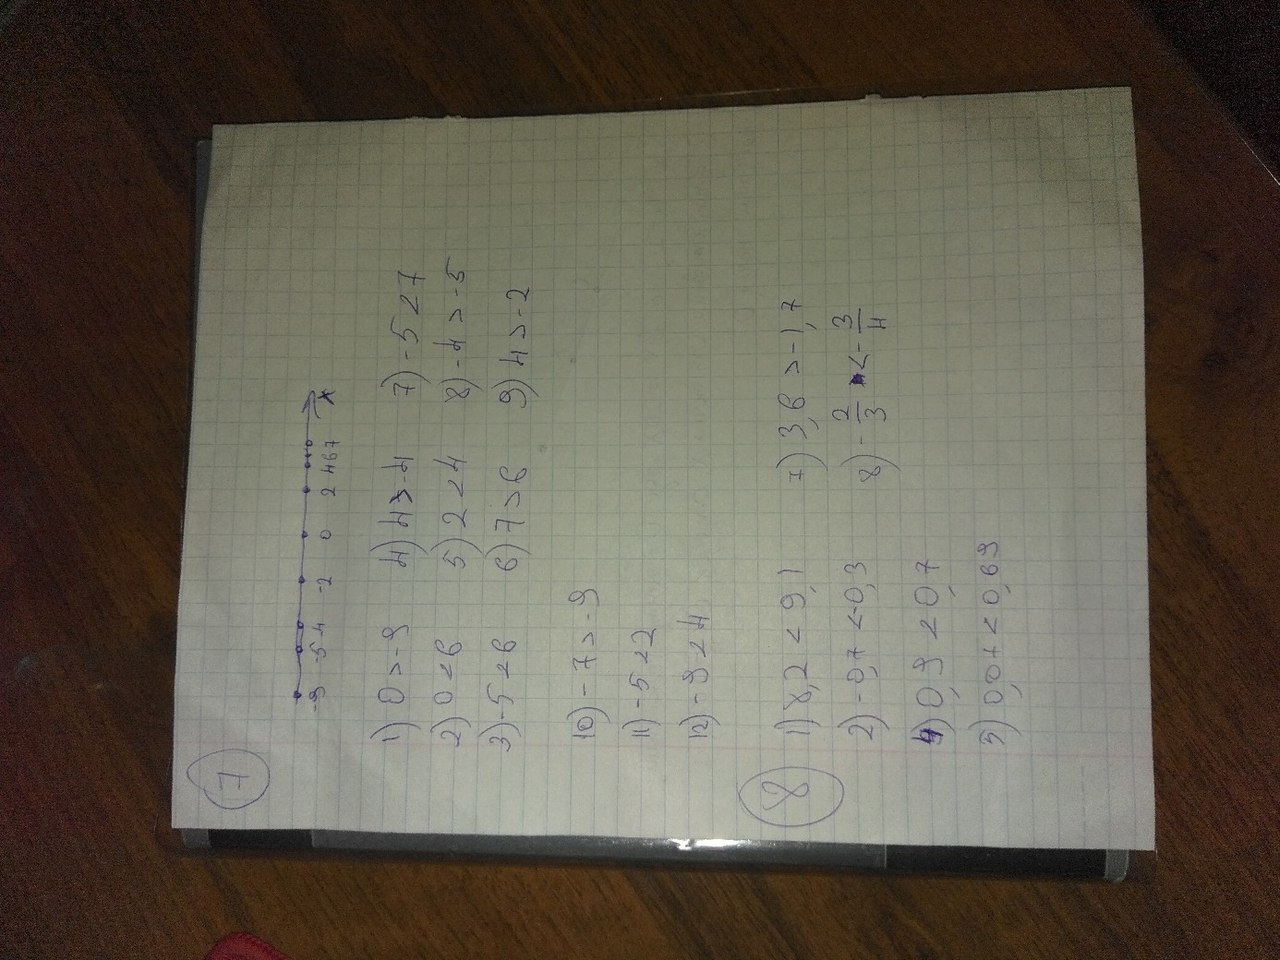 7
-9 -5 -4 -2 0 2 4 6 7 x
1) 0 > -9 4) 4 > -4 7) -5 < 7
2) 0 < 6 5) 2 < 4 8) -4 > -5
3) -5 < 6 6) 7 > 6 9) 4 > -2
10) -7 > -9
11) -5 < 2
12) -9 < 4
8
1) 8,2 < 9,1 7) 3,6 > -1,7
2) -0,7 < -0,3 8) -2/3 < -3/4
4) 0,9 < 0,7
5) 0,07 < 0,69